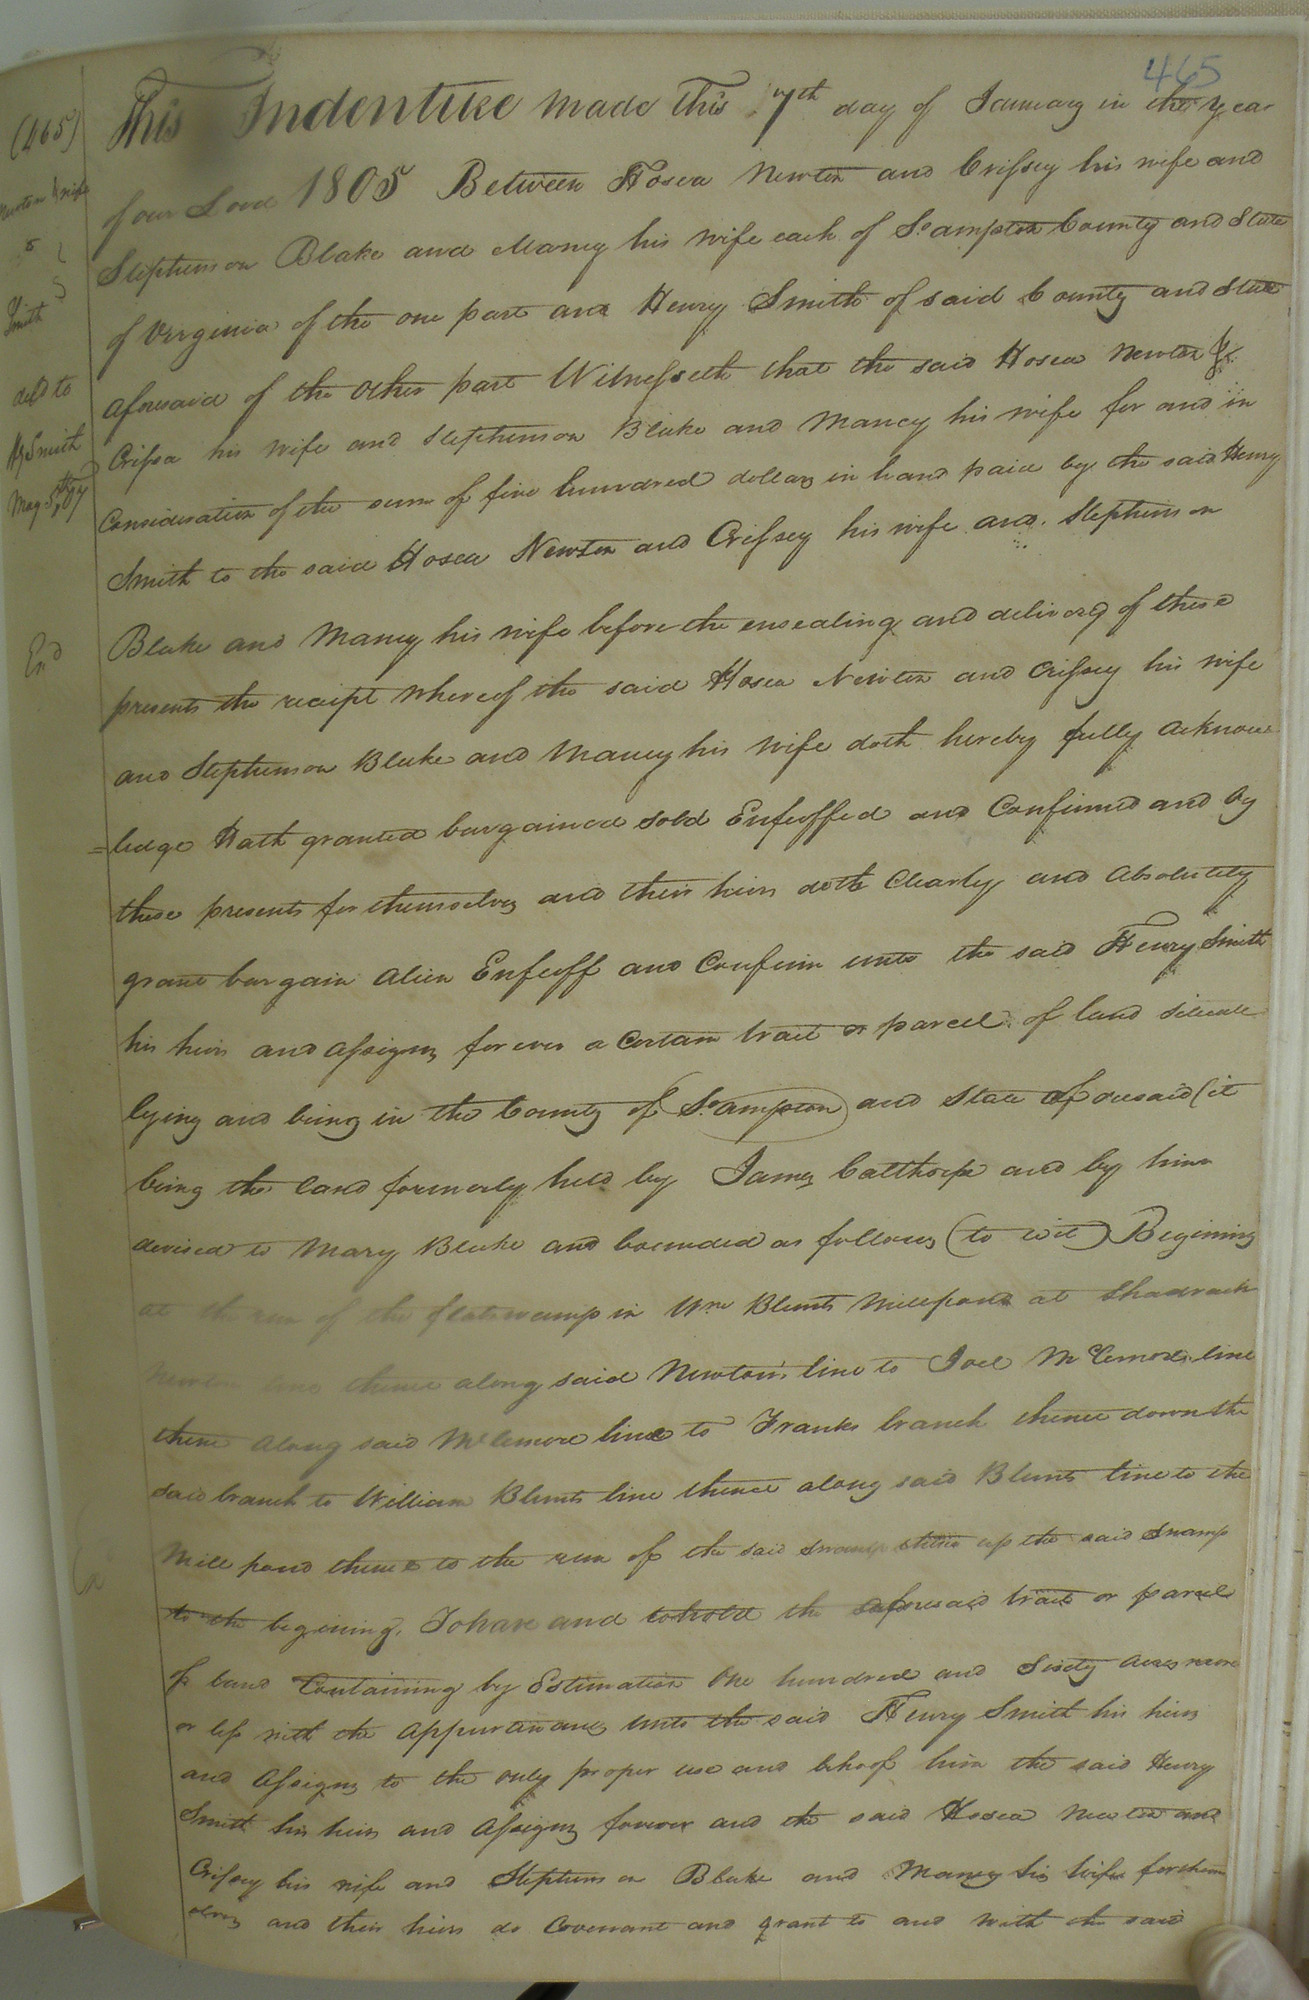 465
(465)
Newton & wife
Smith
deld to
Hy Smith
May 5th 07
Exd
This Indenture made this 7th day of January in the year
of our Lord 1805 Between Hosea Newton and Crissey his wife and
Stephenson Blake and Mancy his wife each of So.ampton County and State
of Verginia of the one part and Henry Smith of said County and State
aforesaid of the other part Witnesseth that the said Hosea Newton &
Crissa his wife and Stephenson Blake and Mancy his wife for and in
Consideration of the sum of five hundred dollars in hand paid by the said Henry
Smith to the said Hosea Newton and Crissey his wife and Stephenson
Blake and Mancy his wife before the ensealing and delivery of these
presents the receipt whereof the said Hosea Newton and Crissey his wife
and Stephenson Blake and Mancy his wife doth hereby fully acknow
=ledge Hath granted bargained sold Enfeoffed and Confirmed and by
these presents for themselves and their heirs doth Clearly and Absolutely
grant bargain alien Enfeoff and Confirm unto the said Henry Smith
his heirs and assigns for ever a Certain tract or parcel of land situate
lying and being in the County of So.ampton and State aforesaid (it
being the land formerly held by James Calthorpe and by him
devised to Mary Blake and bounded as follows (to wit) Begining
at the run of the flatswamp in Wm Blunts Millpond at Shadrach
Newton line thence along said Newton's line to Joel McLemore line
thence along said McLemore line to Franks branch thence down the
said branch to William Blunts line thence along said Blunts line to the
Mill pond thence to the run of the said swamp up the said swamp
to the begining. To have and to hold the aforesaid tract or parcel
of land Containing by Estimation One hundred and Sixty acres more
or less with the appurtanances unto the said Henry Smith his heirs
and Assigns to the only proper use and behoof him the said Henry
Smith his heirs and Assigns forever and the said Hosea Newton and
Crissey his wife and Stephenson Blake and Mancy his wife for them
selves and their heirs do Covenant and grant to and with the said